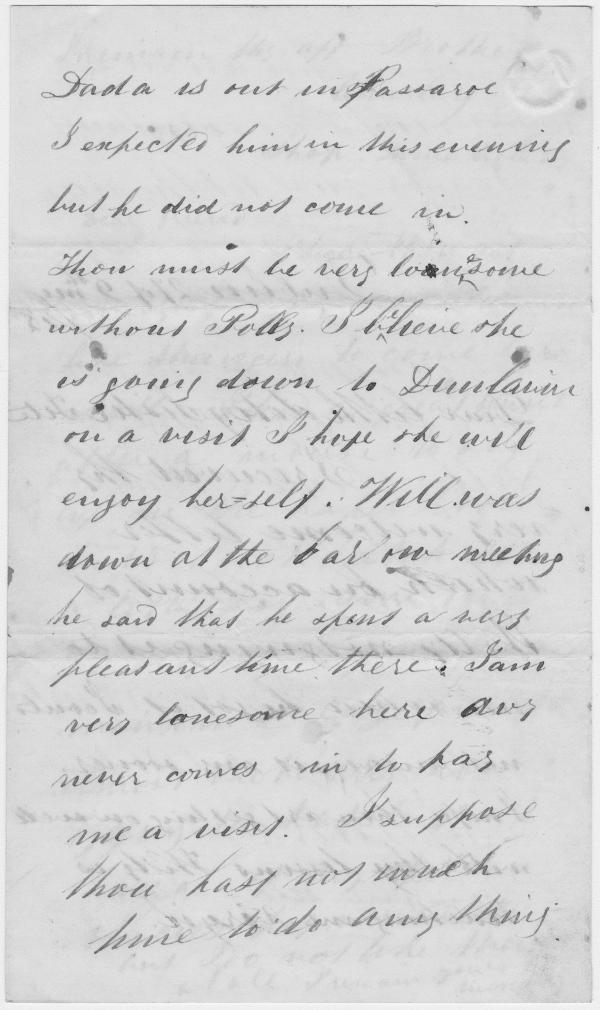 Dada is out in Passaroe
I expected him in this evening
but he did not come in.
Thou must be very loansome
without Polly. I believe she
is going down to Dunlavin
on a visit I hope she will
enjoy her=self. Will was
down at the Carlow meeting
he said that he spent a very
pleasant time there. I am
very lonesome here
never comes in to pay
me a visit. I suppose
thou hast not much
time to do any thing